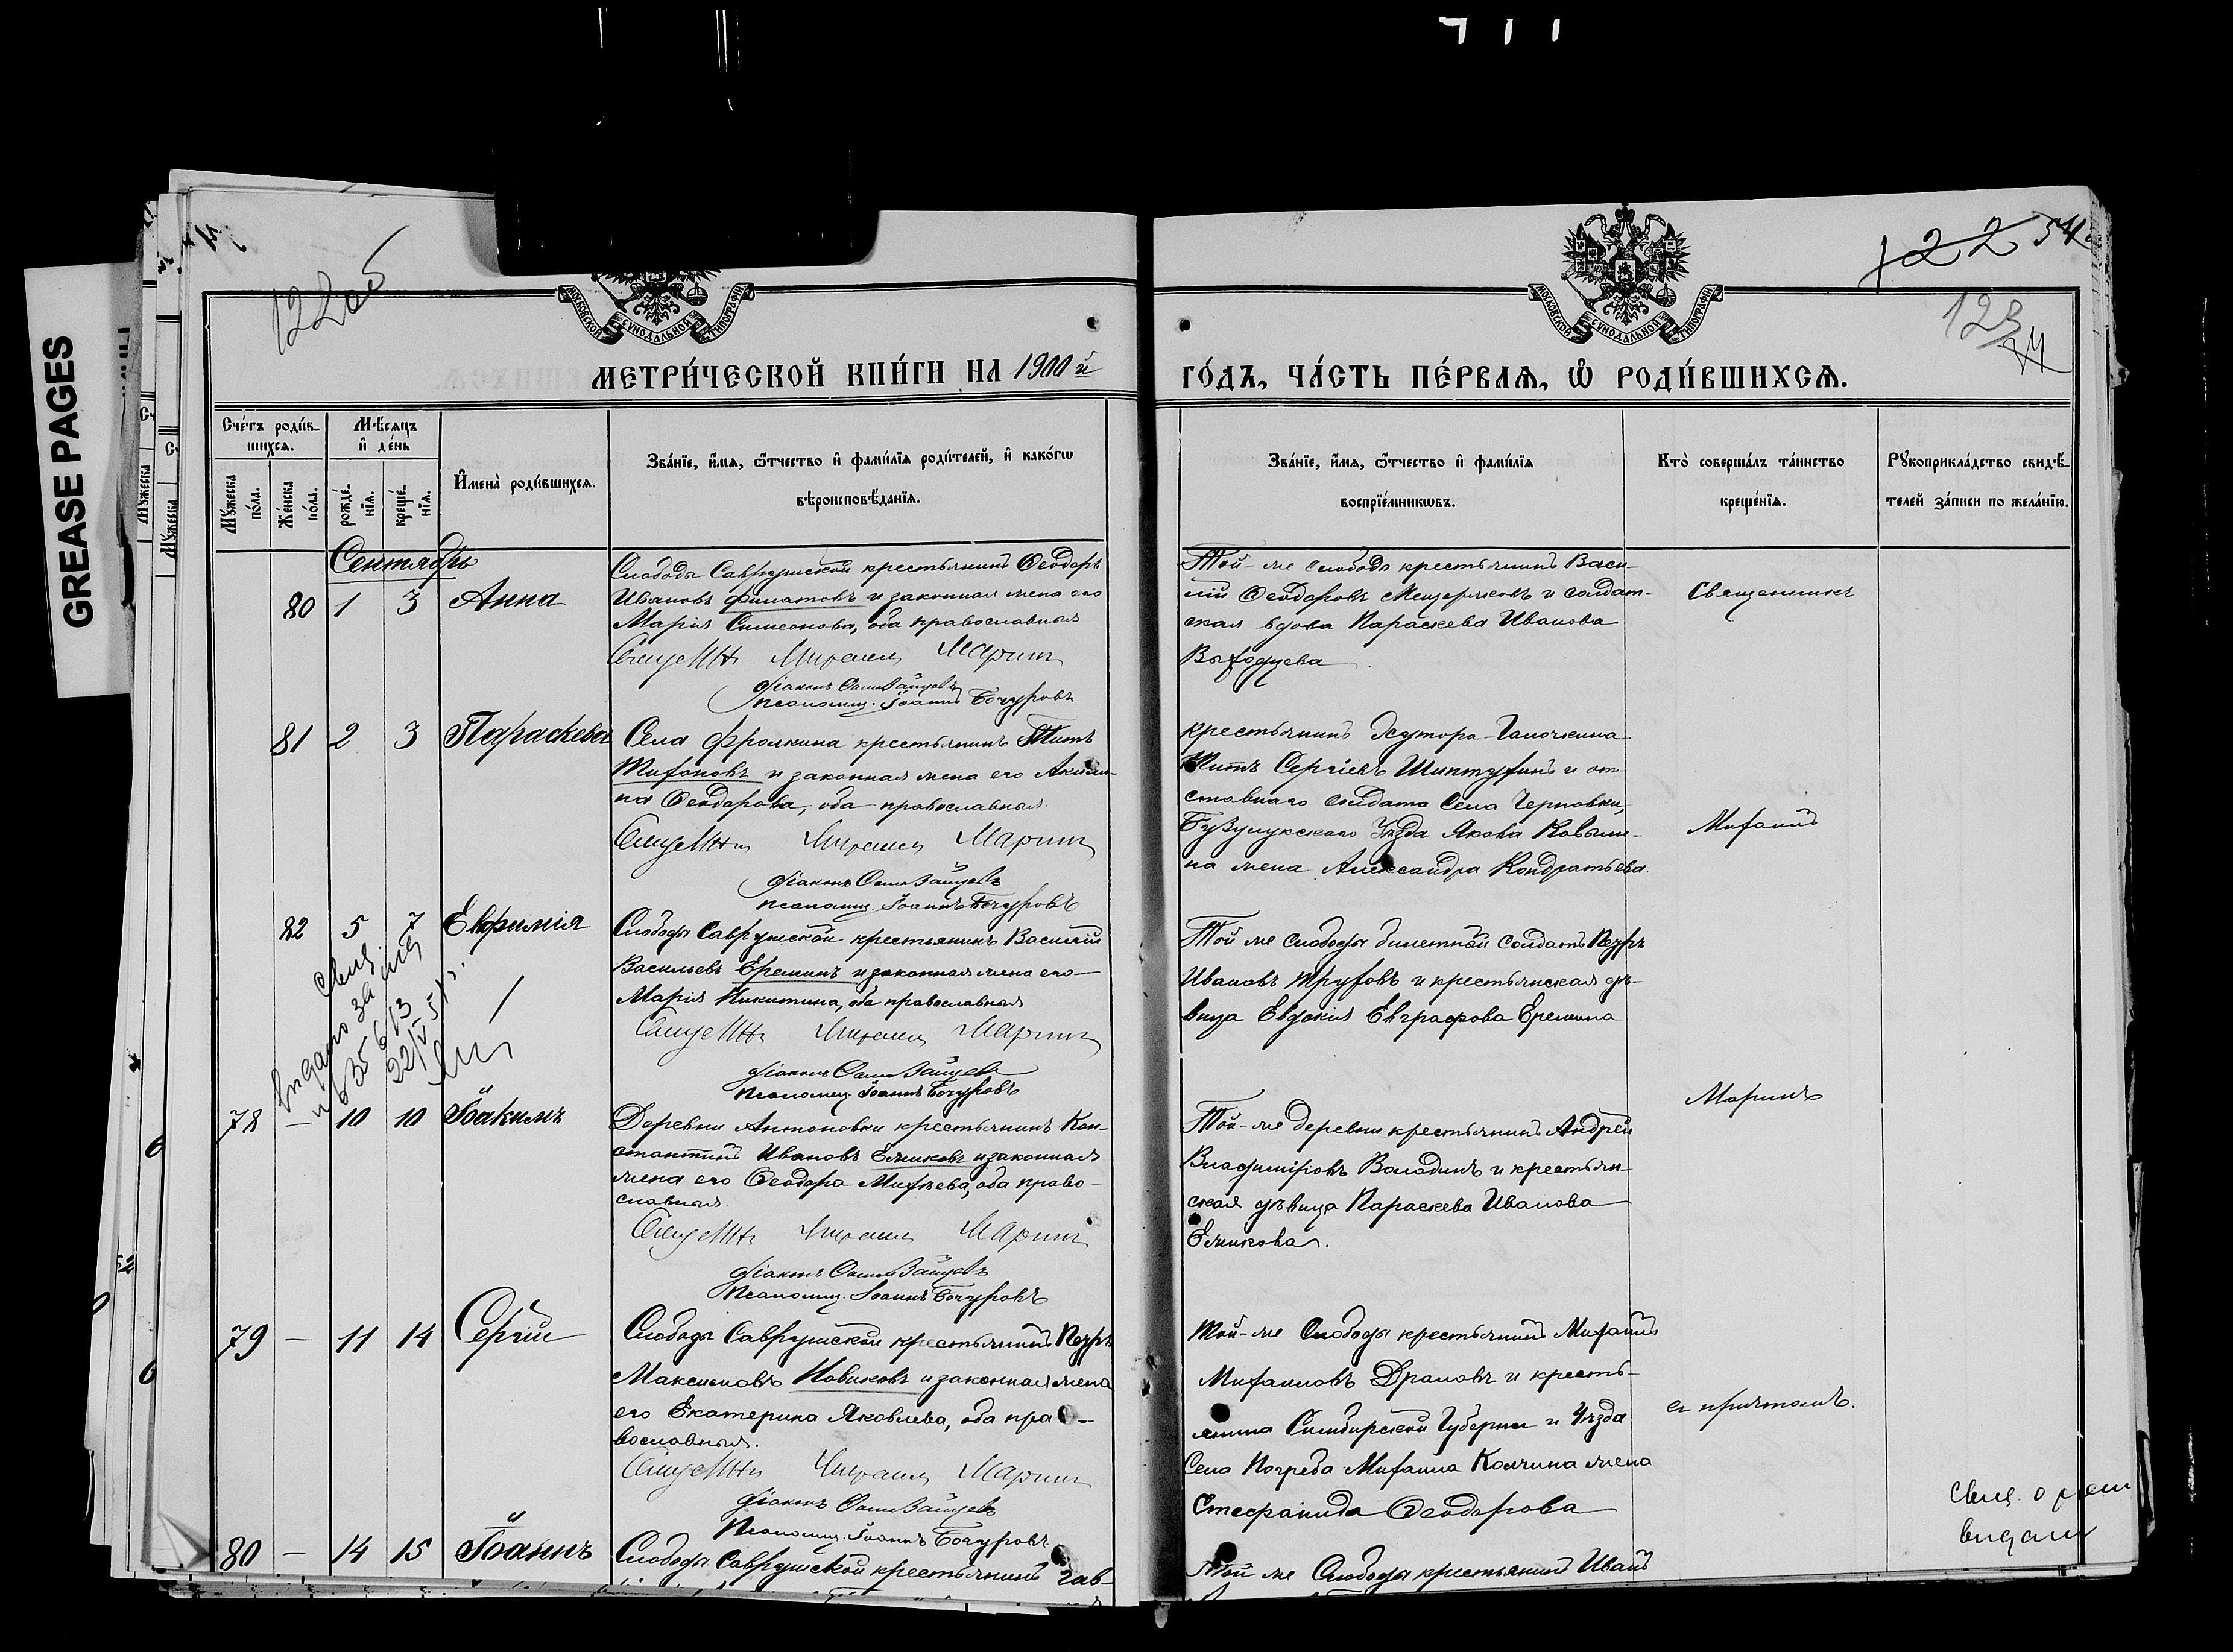 GREASE PAGES
122об
122 54
123
МОСКОВСКОЙ СѴНОДАЛЬНОЙ ТИПОГРАФІИ
МОСКОВСКОЙ СѴНОДАЛЬНОЙ ТИПОГРАФІИ
МЕТРИ́ЧЕСКОЙ КНИ́ГИ НА 1900й
ГО́ДЪ, ЧА́СТЬ ПЕ́РВАЯ, Ѽ РОДИ́ВШИХСЯ.
Сче́тъ роди́в-
шихся.
Мѣ́сяцъ
и҆ де́нь
Му́жеска по́ла.
Же́нска по́ла.
рожде́-
нїя.
креще́-
нїя.
И҆мена̀ роди́вшихся.
Зва́нїе, и҆́мя, ѻ҆́тчество и҆ фами́лїя роди́телей, и҆ како́гѡ
вѣроисповѣ́данїя.
Зва́нїе, и҆́мя, ѻ҆́тчество и҆ фами́лїя
воспрїе́мникѡвъ.
Кто̀ соверша́лъ та́инство
креще́нїя.
Рꙋкоприкла́дство свидѣ́-
телей за́писи по жела́нїю.
Сентябрь
80 1 3 Анна
Слободы Саврушской крестьянинъ Ѳеодоръ
Ивановъ Филатовъ и законная жена его
Марія Симеонова, оба православныя
Михаилъ Маринъ
Діаконъ Зайцевъ
Псаломщ. Іоаннъ Бочуровъ
Той-же слободы крестьянинъ Васи-
лій Ѳеодоровъ Мещеряковъ и солдат-
ская вдова Параскева Иванова
Выходцева
Священникъ
81 2 3 Параскева
Села Фролкина крестьянинъ Титъ
Тифоновъ и законная жена его Акили-
на Ѳеодорова, оба православныя.
Михаилъ Маринъ
Діаконъ Зайцевъ
Псаломщ. Іоаннъ Бочуровъ
крестьянинъ Хутора-Галочкина
Титъ Сергіевъ Шинтуринъ и от-
ставнаго солдата Села Черновки,
Бузулукскаго Уѣзда Якова Ковыли-
на жена Александра Кондратьева.
Михаилъ
82 5 7 Евфимія
Слободы Саврушской крестьянинъ Василій
Васильевъ Ереминъ и законная жена его
Марія Никитина, оба православныя
Михаилъ Маринъ
Діаконъ Зайцевъ
Псаломщ. Іоаннъ Бочуровъ
Той же слободы билетный солдатъ Петръ
Ивановъ Труфовъ и крестьянская дѣ-
вица Евдокія Евграфова Еремина
выдано за
22/V 51 г.
78 — 10 10 Іоакимъ
Деревни Антоновки крестьянинъ Кон-
стантинъ Ивановъ Ежиковъ и законная
жена его Ѳеодора Михѣева, оба право-
славныя.
Михаилъ Маринъ
Діаконъ Зайцевъ
Псаломщ. Іоаннъ Бочуровъ
Той-же деревни крестьянинъ Андрей
Владиміровъ Володинъ и крестьян-
ская дѣвица Параскева Иванова
Ежикова.
Маринъ
79 — 11 14 Сергій
Слободы Саврушской крестьянинъ Петръ
Максимовъ Новиковъ и законная жена
его Екатерина Яковлева, оба пра-
вославныя.
Михаилъ Маринъ
Діаконъ Зайцевъ
Псаломщ. Іоаннъ Бочуровъ
Той-же Слободы крестьянинъ Михаилъ
Михаиловъ Драновъ и кресть-
янина Симбирской Губерніи и Уѣзда
Села Погреба Михаила Колчина жена
Стефанида Ѳеодорова
съ причтомъ.
80 — 14 15 Іоаннъ
Слободы Саврушской крестьянинъ Гав-
Той же Слободы крестьянинъ Иванъ
выдано